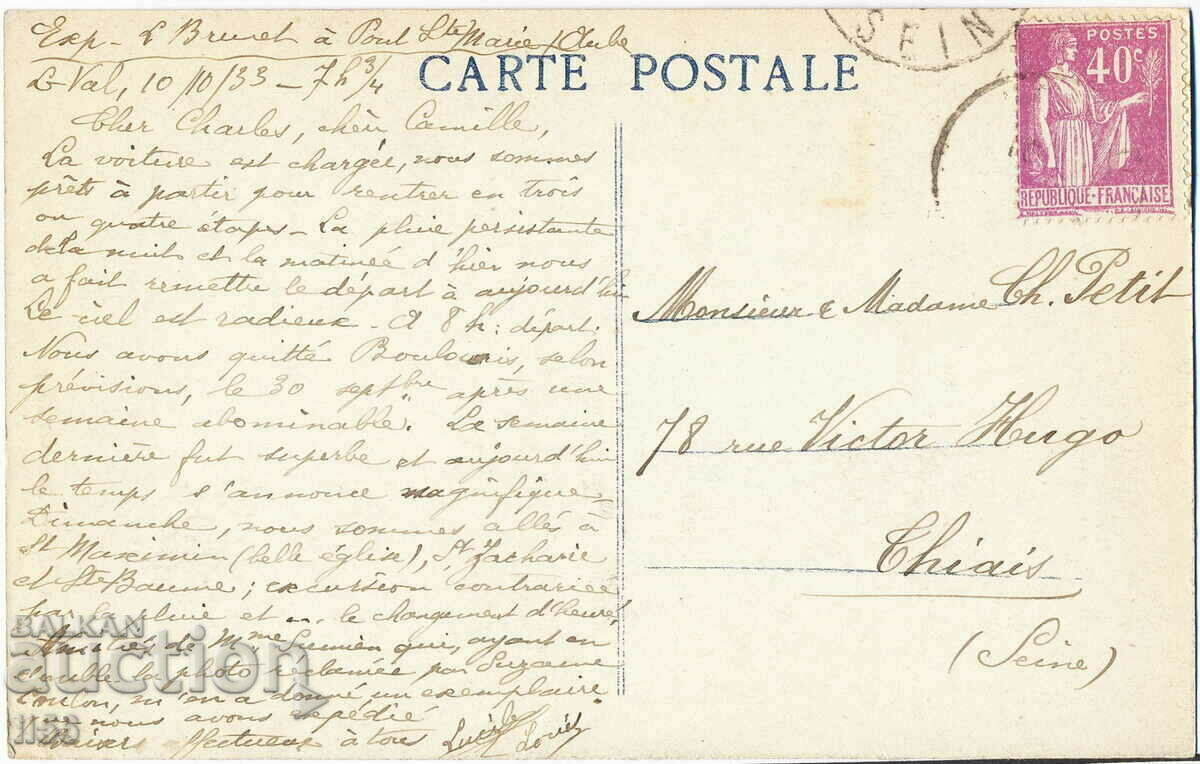 Exp - L Brunet à Pont Ste Marie, Aube
Le Val, 10/10/33 - 7h 3/4
CARTE POSTALE
SEIN
POSTES
40c
REPUBLIQUE-FRANÇAISE
Cher Charles, chère Camille,
La voiture est chargée, nous sommes
prêts à partir pour rentrer en trois
ou quatre étapes - La pluie persistante
de la nuit et la matinée d'hier nous
a fait remettre le départ à aujourd'hui
Le ciel est radieux - A 8h: départ.
Nous avons quitté Boulouris, selon
prévisions, le 30 septbre après une
semaine abominable. La semaine
dernière fut superbe et aujourd'hui
le temps s'annonce magnifique -
Dimanche, nous sommes allés à
St Maximin (belle église), St Zacharie
et Ste Baume; excursion contrariée
par la pluie et le changement d'heure,
Amitiés de Mme qui, ayant en
double la photo réclamée par Suzanne
m'en a donné un exemplaire
nous avons expédié
à tous
Monsieur & Madame Ch. Petit
78 rue Victor Hugo
Thiais
(Seine)
BALKAN
auction